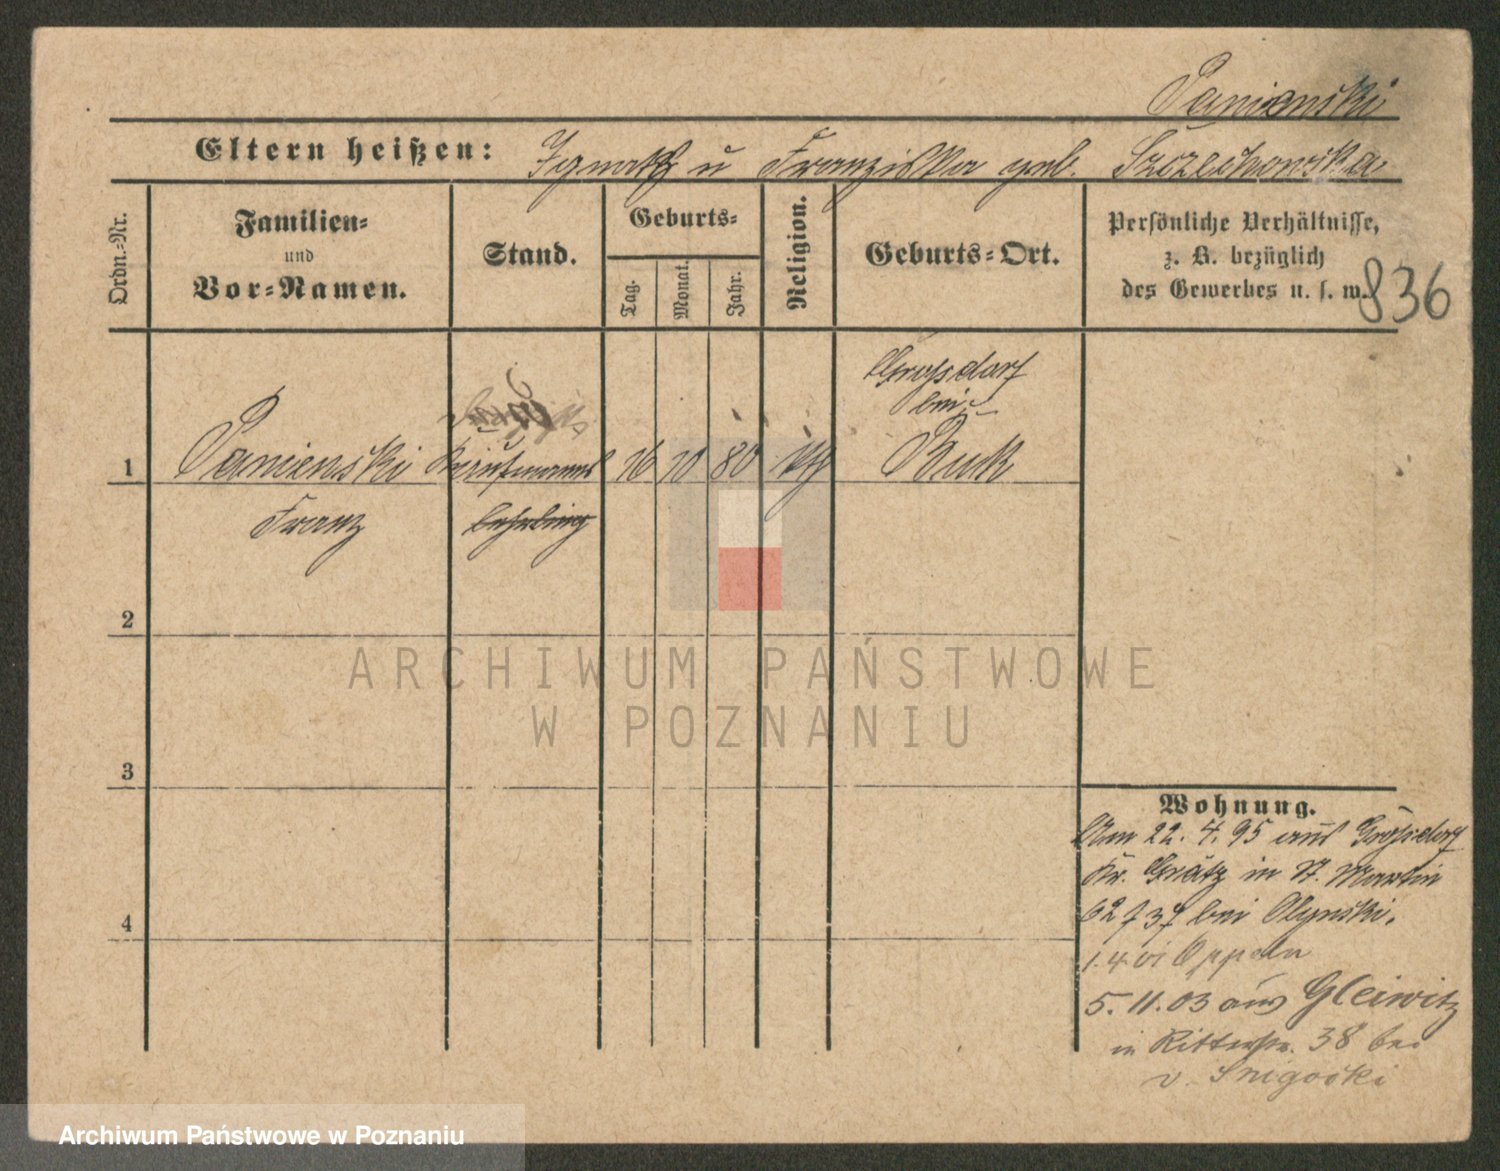 Panienski
Eltern heißen: Ignatz u Franziska geb. Szczechowska
Ordn.=Nr.
Familien=
und
Vor=Namen.
Stand.
Geburts=
Tag.
Monat.
Jahr.
Religion.
Geburts=Ort.
Persönliche Verhältnisse,
z. B. bezüglich
des Gewerbes u. s. w.
836
Grossdorf
bei
1 Panienski Kaufmanns 16 10 80 Buk
Franz lehrling
2
3
4
Wohnung.
Am 22. 4. 95 aus Grossdorf
Kr. Grätz in St. Martin
62 bei Olynski.
1. 4. 01 Oppeln
5. 11. 03 aus Gleiwitz
in Ritterstr. 38 bei
v. Snigocki
ARCHIWUM PAŃSTWOWE
W POZNANIU
Archiwum Państwowe w Poznaniu